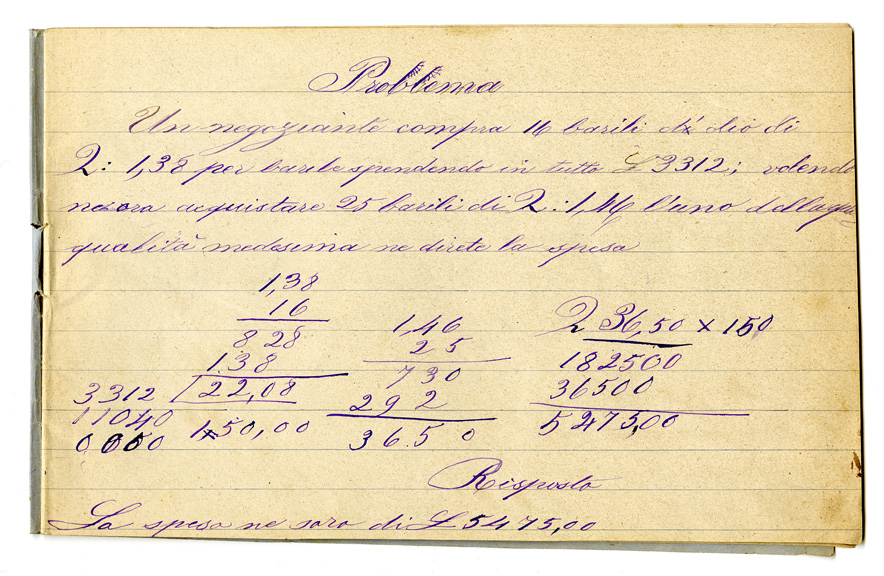 Problema
Un negoziante compra 16 barili di olio di
Q: 1,38 per barile spendendo in tutto £ 3312; volendo
ne ora acquistare 25 barili di Q: 1,46 l'uno della
qualità medesima ne direte la spesa
1,38
16
828
138
3312 | 22,08
11040 150,00
0000
1,46
25
730
292
36.50
Q 36,50 × 150
182500
36500
5475,00
Risposta
La spesa ne sara di £ 5475,00